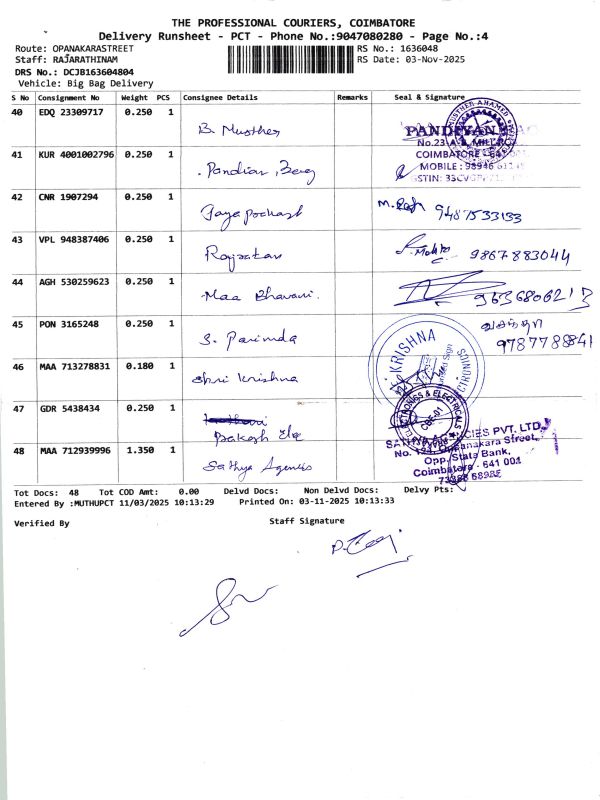 THE PROFESSIONAL COURIERS, COIMBATORE
Delivery Runsheet - PCT - Phone No.:9047080280 - Page No.:4
Route: OPANAKARASTREET
RS No.: 1636048
Staff: RAJARATHINAM
RS Date: 03-Nov-2025
DRS No.: DCJB163604804
Vehicle: Big Bag Delivery
S No Consignment No Weight PCS Consignee Details Remarks Seal & Signature
40 EDQ 23309717 0.250 1 B. Musther
MUSTHER AHAMED
PANDIYAN
No.23-A
COIMBATORE - 641 001
MOBILE : 98946
GSTIN: 33CVGPP
41 KUR 4001002796 0.250 1 Pandian
42 CNR 1907294 0.250 1 Jayaprakash 9487533133
43 VPL 948387406 0.250 1 Rajratan 9867883044
44 AGH 530259623 0.250 1 Maa Bhavani. 9636806213
45 PON 3165248 0.250 1 S. Parimda வசந்தா
9787788841
46 MAA 713278831 0.180 1 Shri Krishna
KRISHNA
47 GDR 5438434 0.250 1 Prakash Ele
ELECTRONICS & ELECTRICALS
CBE-01
48 MAA 712939996 1.350 1 Sathya Agencies
SATHYA AGENCIES PVT. LTD.,
Opanakara Street,
Opp. State Bank,
Coimbatore - 641 001
Tot Docs: 48 Tot COD Amt: 0.00 Delvd Docs: Non Delvd Docs: Delvy Pts:
Entered By :MUTHUPCT 11/03/2025 10:13:29 Printed On: 03-11-2025 10:13:33
Verified By
Staff Signature